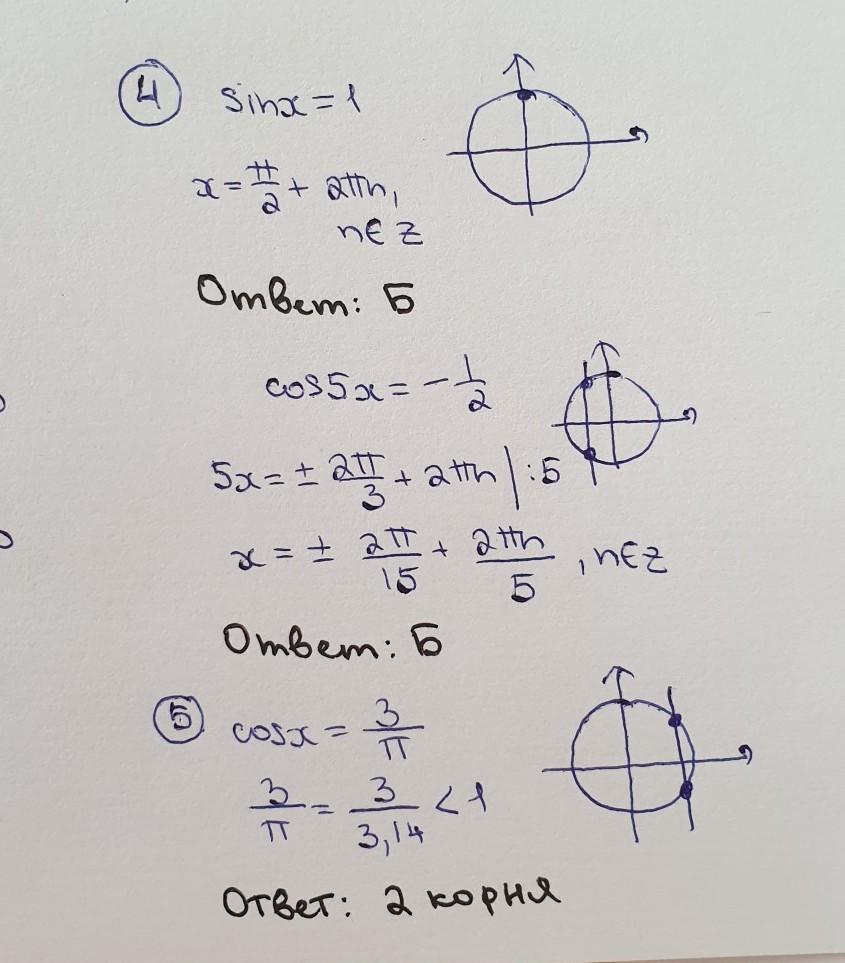 4 sinx = 1
x = π/2 + 2πn,
n∈Z
Ответ: Б
cos5x = -1/2
5x = ± 2π/3 + 2πn | :5
x = ± 2π/15 + 2πn/5 , n∈Z
Ответ: Б
5 cosx = 3/π
3/π = 3/3,14 < 1
Ответ: 2 корня